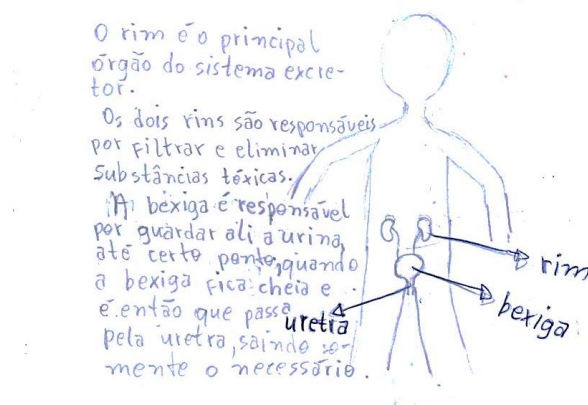 O rim é o principal
órgão do sistema excre-
tor.
Os dois rins são responsáveis
por filtrar e eliminar
substâncias tóxicas.
A bexiga é responsável
por guardar ali a urina,
até certo ponto, quando
a bexiga fica cheia e
é então que passa
pela uretra, saindo so-
mente o necessário.
rim
bexiga
uretra